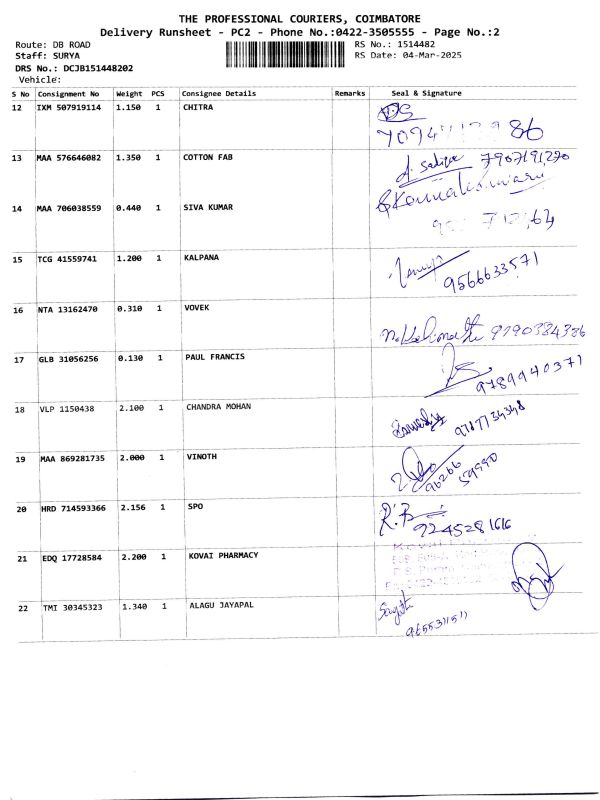 THE PROFESSIONAL COURIERS, COIMBATORE
Delivery Runsheet - PC2 - Phone No.:0422-3505555 - Page No.:2
Route: DB ROAD
RS No.: 1514482
Staff: SURYA
RS Date: 04-Mar-2025
DRS No.: DCJB151448202
Vehicle:
S No Consignment No Weight PCS Consignee Details Remarks Seal & Signature
12 IXM 507919114 1.150 1 CHITRA
13 MAA 576646082 1.350 1 COTTON FAB 7907191270
14 MAA 706038559 0.440 1 SIVA KUMAR
15 TCG 41559741 1.200 1 KALPANA
9566633571
16 NTA 13162470 0.310 1 VOVEK
9790384386
17 GLB 31056256 0.130 1 PAUL FRANCIS
9789940371
18 VLP 1150438 2.100 1 CHANDRA MOHAN
9787734348
19 MAA 869281735 2.000 1 VINOTH
96266
59990
20 HRD 714593366 2.156 1 SPO
9245281616
21 EDQ 17728584 2.200 1 KOVAI PHARMACY
22 TMI 30345323 1.340 1 ALAGU JAYAPAL
9655311511